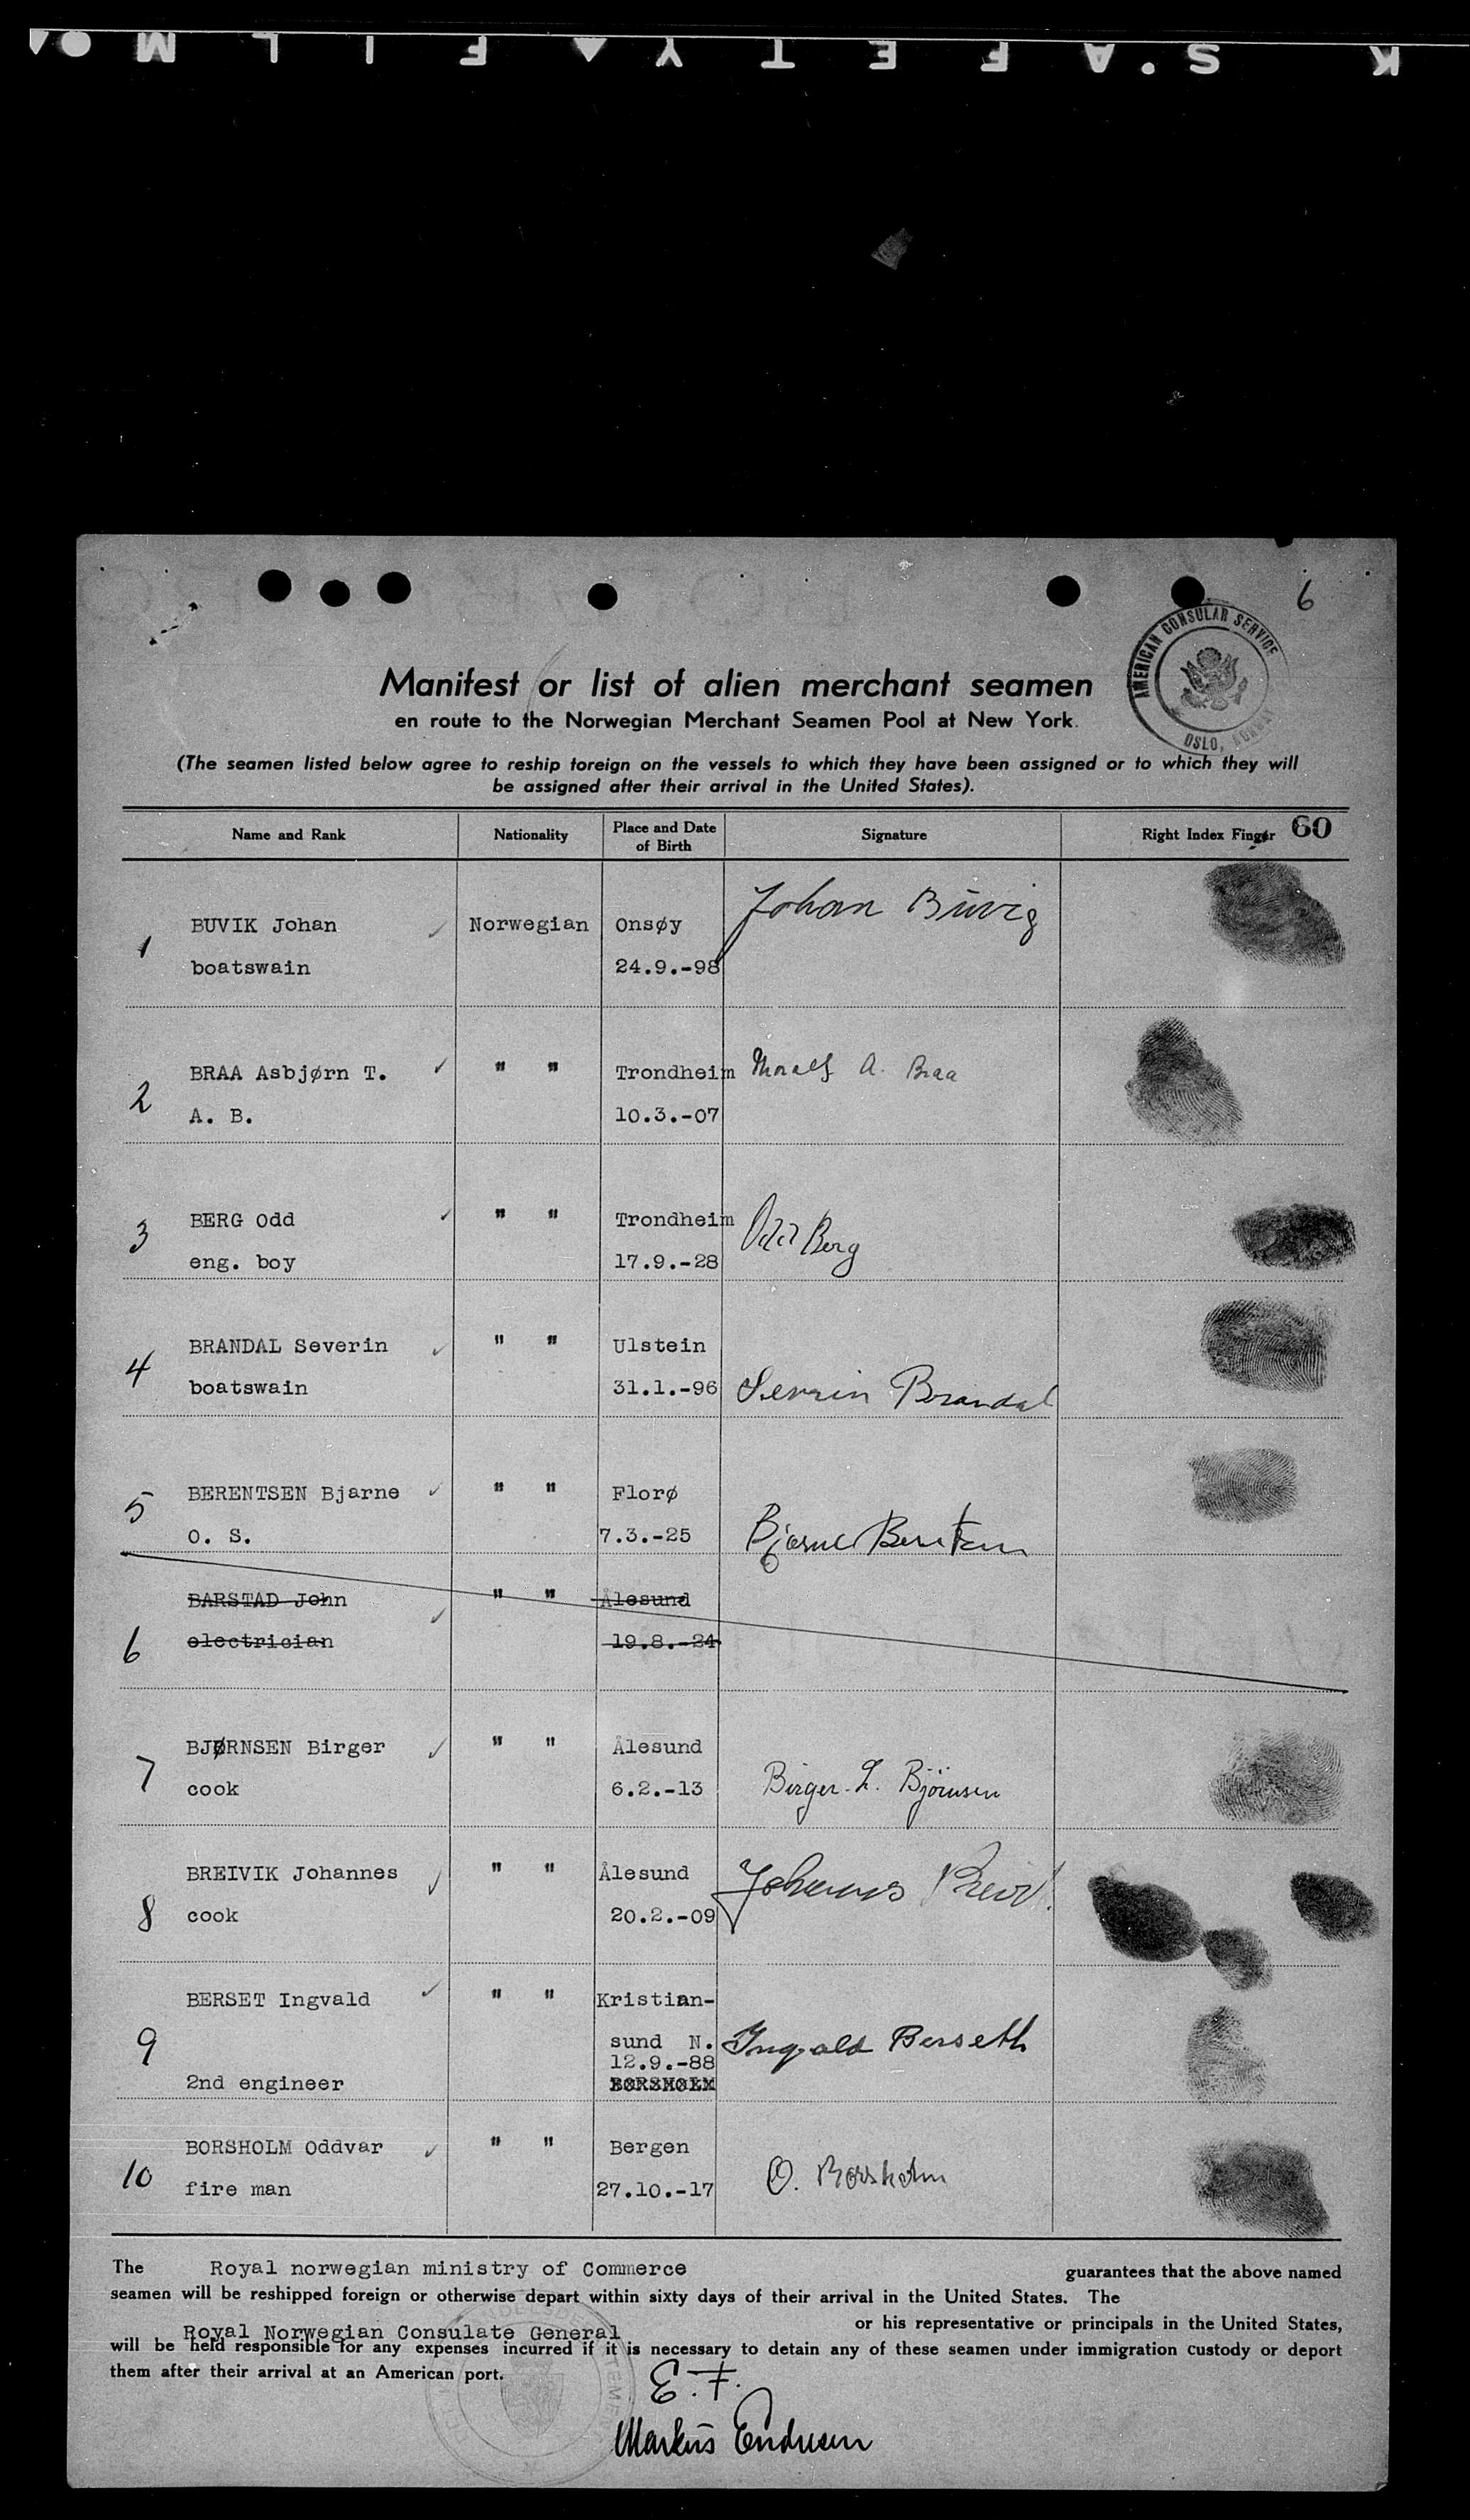 K S.AFETY FILM
6
AMERICAN CONSULAR SERVICE
OSLO, NORWAY
Manifest or list of alien merchant seamen
en route to the Norwegian Merchant Seamen Pool at New York.
(The seamen listed below agree to reship foreign on the vessels to which they have been assigned or to which they will
be assigned after their arrival in the United States).
Name and Rank Nationality Place and Date of Birth Signature Right Index Finger 60
1 BUVIK Johan ✓ Norwegian Onsøy Johan Buvig
boatswain 24.9.-98
2 BRAA Asbjørn T. ✓ " " Trondheim A. Braa
A. B. 10.3.-07
3 BERG Odd ✓ " " Trondheim Odd Berg
eng. boy 17.9.-28
4 BRANDAL Severin ✓ " " Ulstein
boatswain 31.1.-96 Severin Brandal
5 BERENTSEN Bjarne ✓ " " Florø
O. S. 7.3.-25 Bjarne Berentsen
6 BARSTAD John ✓ " " Ålesund
electrician 19.8.-24
7 BJØRNSEN Birger ✓ " " Ålesund
cook 6.2.-13 Birger. L. Björnsen
8 BREIVIK Johannes ✓ " " Ålesund Johannes
cook 20.2.-09
9 BERSET Ingvald ✓ " " Kristian-
sund N. Ingvald Berseth
12.9.-88
2nd engineer BORSHOLM
10 BORSHOLM Oddvar ✓ " " Bergen
fire man 27.10.-17 O. Borsholm
The Royal norwegian ministry of Commerce guarantees that the above named
seamen will be reshipped foreign or otherwise depart within sixty days of their arrival in the United States. The
Royal Norwegian Consulate General or his representative or principals in the United States,
will be held responsible for any expenses incurred if it is necessary to detain any of these seamen under immigration custody or deport
them after their arrival at an American port.
E. F.
Markus Endresen